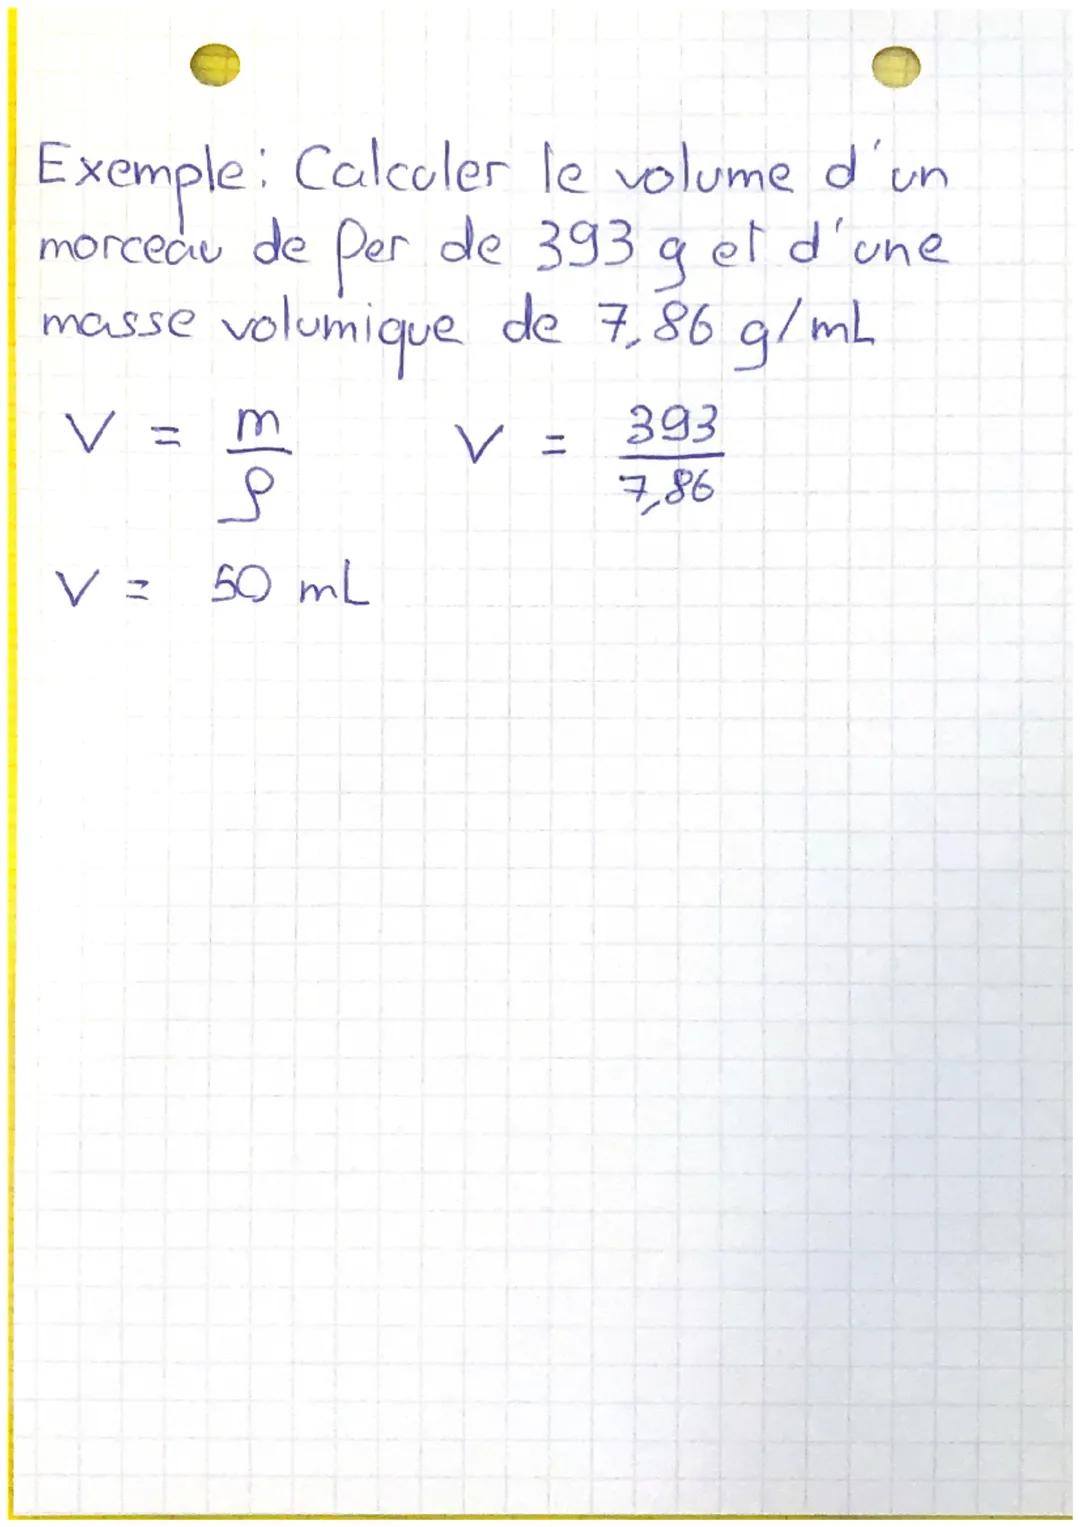 Exemple: Calculer le volume d'un
morceau de fer de 393 g et d'une
masse volumique de 7,86 g/mL
V = m/ρ V = 393/7,86
V = 50 mL